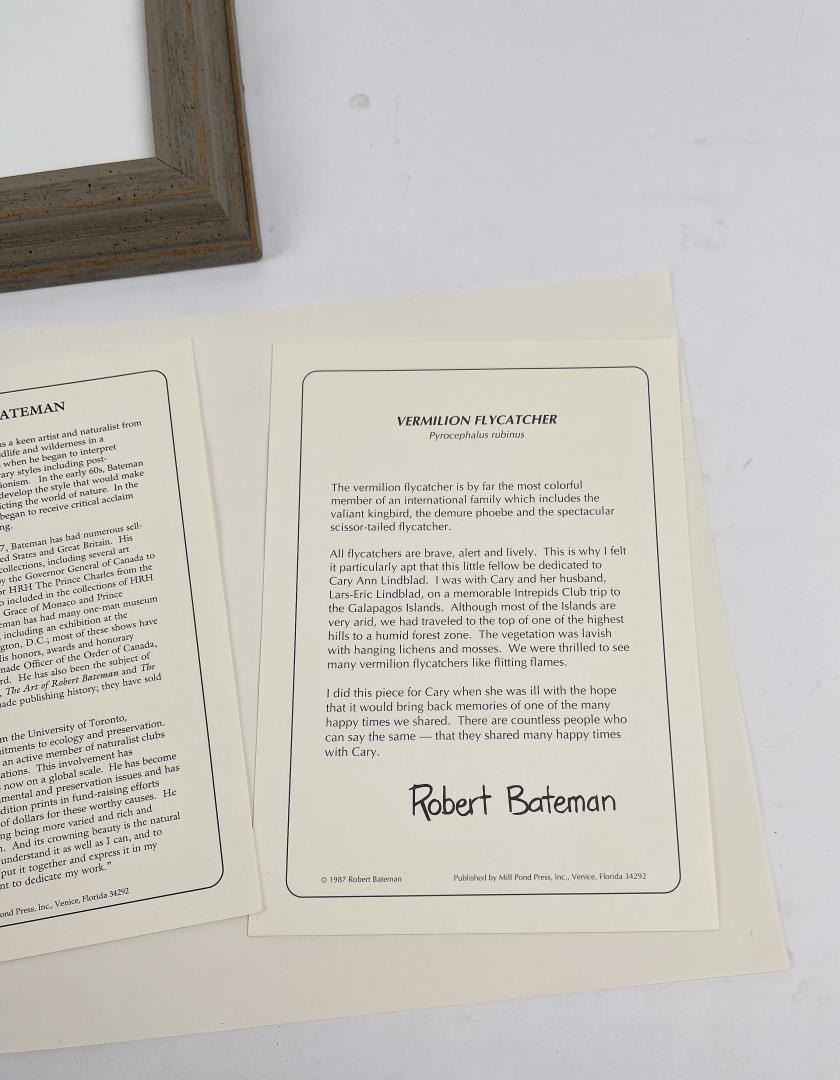 ATEMAN
s a keen artist and naturalist from
dlife and wilderness in a
when he began to interpret
ary styles including post-
ionism. In the early 60s, Bateman
develop the style that would make
icting the world of nature. In the
began to receive critical acclaim
ng.
7, Bateman has had numerous sell-
ed States and Great Britain. His
collections, including several art
by the Governor General of Canada to
or HRH The Prince Charles from the
o included in the collections of HRH
Grace of Monaco and Prince
eman has had many one-man museum
including an exhibition at the
gton, D.C.; most of these shows have
His honors, awards and honorary
made Officer of the Order of Canada,
rd. He has also been the subject of
The Art of Robert Bateman and The
made publishing history; they have sold
m the University of Toronto,
itments to ecology and preservation.
an active member of naturalist clubs
ations. This involvement has
now on a global scale. He has become
nmental and preservation issues and has
dition prints in fund-raising efforts
of dollars for these worthy causes. He
ng being more varied and rich and
n. And its crowning beauty is the natural
understand it as well as I can, and to
put it together and express it in my
nt to dedicate my work."
ond Press, Inc., Venice, Florida 34292
VERMILION FLYCATCHER
Pyrocephalus rubinus
The vermilion flycatcher is by far the most colorful
member of an international family which includes the
valiant kingbird, the demure phoebe and the spectacular
scissor-tailed flycatcher.
All flycatchers are brave, alert and lively. This is why I felt
it particularly apt that this little fellow be dedicated to
Cary Ann Lindblad. I was with Cary and her husband,
Lars-Eric Lindblad, on a memorable Intrepids Club trip to
the Galapagos Islands. Although most of the Islands are
very arid, we had traveled to the top of one of the highest
hills to a humid forest zone. The vegetation was lavish
with hanging lichens and mosses. We were thrilled to see
many vermilion flycatchers like flitting flames.
I did this piece for Cary when she was ill with the hope
that it would bring back memories of one of the many
happy times we shared. There are countless people who
can say the same — that they shared many happy times
with Cary.
Robert Bateman
© 1987 Robert Bateman Published by Mill Pond Press, Inc., Venice, Florida 34292